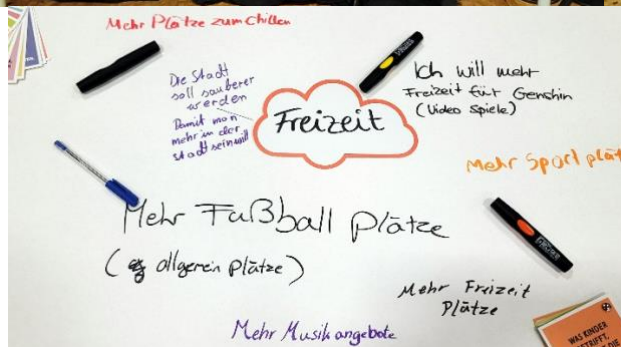 Mehr Plätze zum Chillen
Die Stadt
soll sauberer
werden
Damit man
mehr in der
Stadt sein will
Freizeit
Ich will mehr
Freizeit für Genshin
(Video Spiele)
Mehr Sport plät
Mehr Fußball Plätze
( allgemein Plätze)
Mehr Freizeit
Plätze
Mehr Musikangebote
WAS KINDER